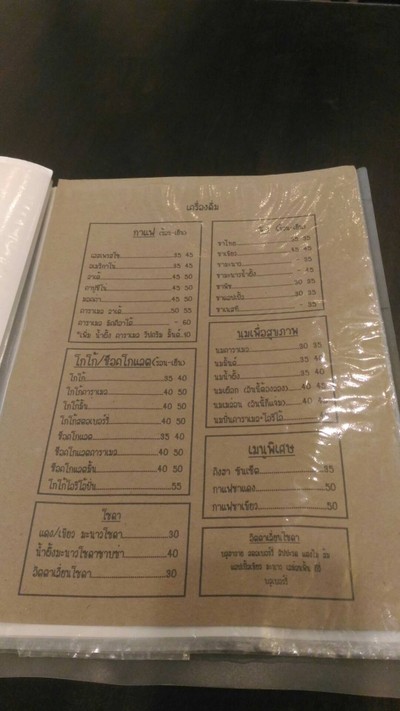 เครื่องดื่ม
กาแฟ (ร้อน-เย็น)
เอสเพรสโซ่ 35 45
อเมริกาโน่ 35 45
ลาเต้ 45 50
คาปูชิโน่ 45 50
มอคค่า 45 50
คาราเมล ลาเต้ 50 55
คาราเมล มัคคิอาโต้ - 60
*เพิ่ม น้ำผึ้ง คาราเมล วิปครีม ช็อตล่ะ 10
โกโก้/ช็อคโกแลต (ร้อน-เย็น)
โกโก้ 35 40
โกโก้คาราเมล 40 50
โกโก้มิ้น 40 50
โกโก้สตอเบอร์รี่ 40 50
ช็อคโกแลต 35 40
ช็อคโกแลตคาราเมล 40 50
ช็อคโกแลตมิ้น 40 50
โกโก้โอรีโอปั่น 55
โซดา
แดง/เขียว มะนาวโซดา 30
น้ำผึ้งมะนาวโซดาซาบซ่า 40
อิตาเลี่ยนโซดา 30
(ร้อน-เย็น)
ชาไทย 35 45
ชาเขียว 35 45
ชามะนาว - 35
ชามะนาวน้ำผึ้ง - 45
ชาพีช 30 35
ชาแอปเปิ้ล 30 35
- 35
นมเพื่อสุขภาพ
นมคาราเมล 30 35
นมปั่น
นมน้ำผึ้ง 35 40
นมเผือก 40
นมเมล่อน 40
นมปั่นคาราเมล+โอรีโอ้ 50
เมนูพิเศษ
35
กาแฟชาแดง 50
กาแฟชาเขียว 50
อิตาเลี่ยนโซดา
บลูฮาวาย สตอเบอร์รี่
แอปเปิ้ลเขียว มะนาว
บลูเบอร์รี่